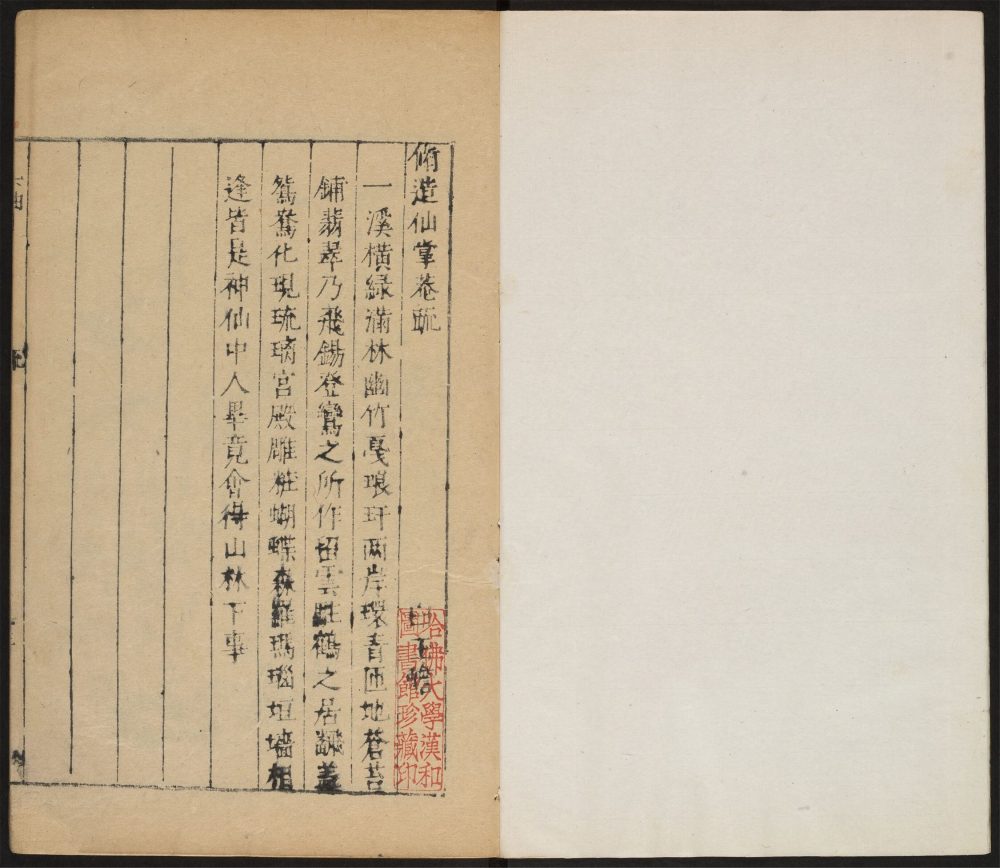 脩造仙掌菴疏
白玉蟾
一溪橫緑滿林幽竹戞琅玕兩岸環青匝地蒼苔
鋪翡翠乃飛錫登鸞之所作留雲駐鶴之居翻蓋
鴛鴦化現琉璃宮殿雕粧蝴蝶森羅瑪瑙垣墻相
逢皆是神仙中人畢竟會得山林下事
哈佛大學漢和
圖書館珍藏印